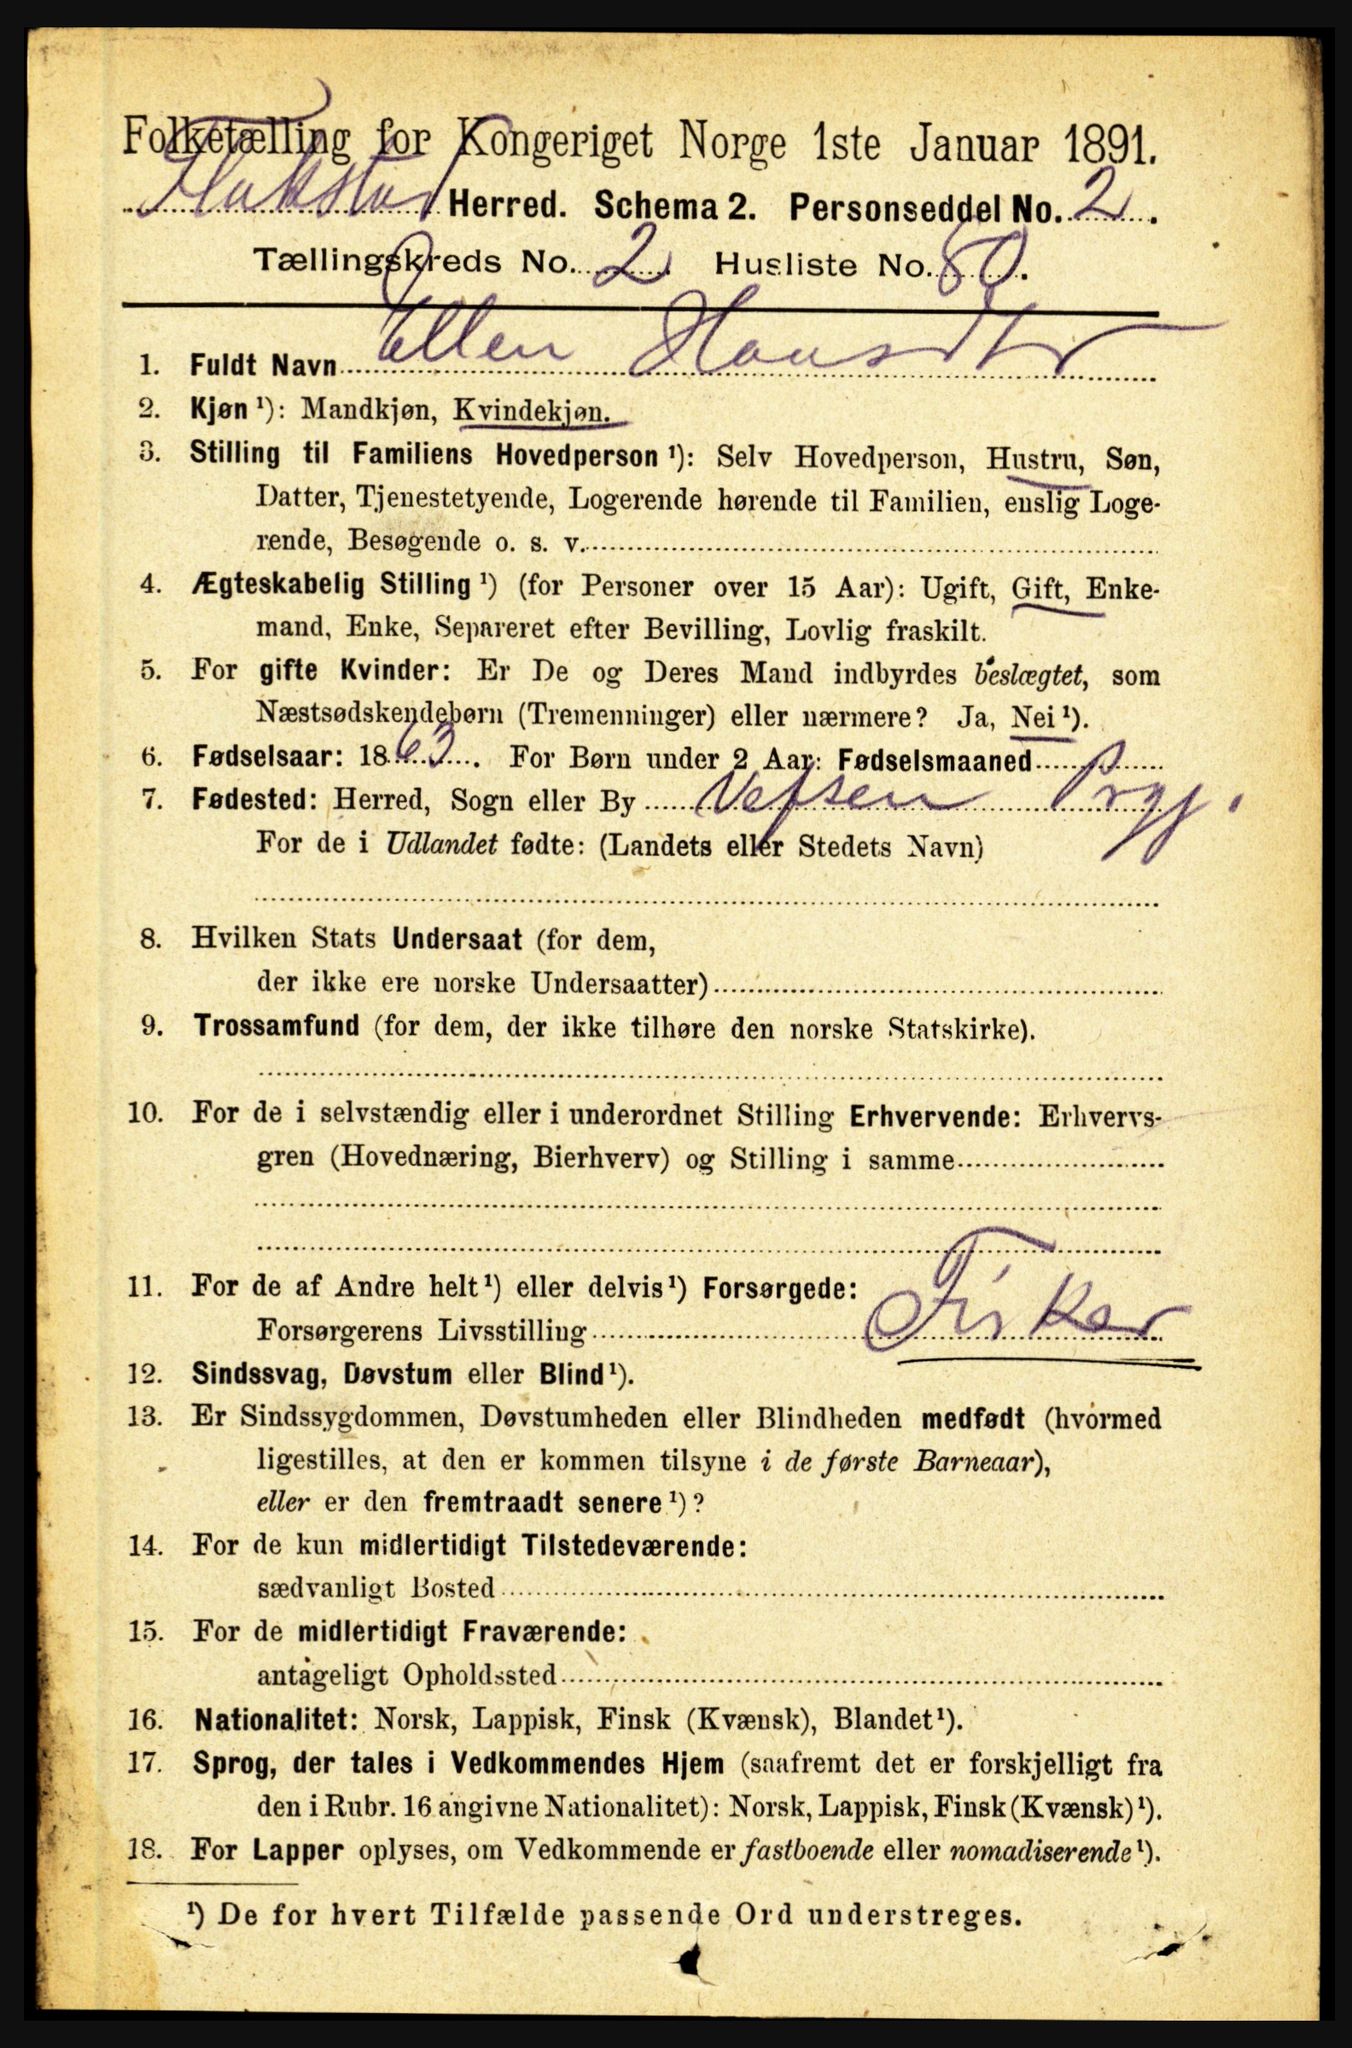 Folketælling for Kongeriget Norge 1ste Januar 1891.
Flakstad Herred. Schema 2. Personseddel No. 2.
Tællingskreds No. 2 Husliste No. 80.
1. Fuldt Navn Ellen Hansdtr
2. Kjøn ¹): Mandkjøn, Kvindekjøn.
3. Stilling til Familiens Hovedperson ¹): Selv Hovedperson, Hustru, Søn,
Datter, Tjenestetyende, Logerende hørende til Familien, enslig Loge-
rende, Besøgende o. s. v.
4. Ægteskabelig Stilling ¹) (for Personer over 15 Aar): Ugift, Gift, Enke-
mand, Enke, Separeret efter Bevilling, Lovlig fraskilt.
5. For gifte Kvinder: Er De og Deres Mand indbyrdes beslægtet, som
Næstsødskendebørn (Tremenninger) eller nærmere? Ja, Nei ¹).
6. Fødselsaar: 1863. For Børn under 2 Aar: Fødselsmaaned
7. Fødested: Herred, Sogn eller By Vefsen Prgj.
For de i Udlandet fødte: (Landets eller Stedets Navn)
8. Hvilken Stats Undersaat (for dem,
der ikke ere norske Undersaatter)
9. Trossamfund (for dem, der ikke tilhøre den norske Statskirke).
10. For de i selvstændig eller i underordnet Stilling Erhvervende: Erhvervs-
gren (Hovednæring, Bierhverv) og Stilling i samme
11. For de af Andre helt ¹) eller delvis ¹) Forsørgede:
Forsørgerens Livsstilling Fisker
12. Sindssvag, Døvstum eller Blind ¹).
13. Er Sindssygdommen, Døvstumheden eller Blindheden medfødt (hvormed
ligestilles, at den er kommen tilsyne i de første Barneaar),
eller er den fremtraadt senere ¹)?
14. For de kun midlertidigt Tilstedeværende:
sædvanligt Bosted
15. For de midlertidigt Fraværende:
antageligt Opholdssted
16. Nationalitet: Norsk, Lappisk, Finsk (Kvænsk), Blandet ¹).
17. Sprog, der tales i Vedkommendes Hjem (saafremt det er forskjelligt fra
den i Rubr. 16 angivne Nationalitet): Norsk, Lappisk, Finsk (Kvænsk) ¹).
18. For Lapper oplyses, om Vedkommende er fastboende eller nomadiserende ¹).
¹) De for hvert Tilfælde passende Ord understreges.